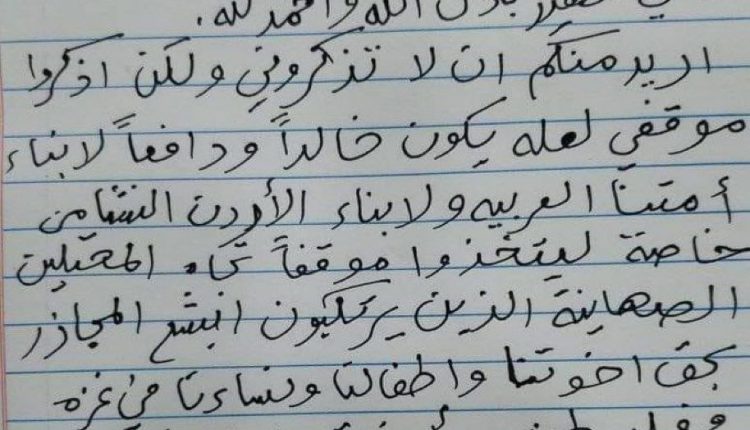 بإذن الله والحمد لله.
اريد منكم ان لا تذكروني ولكن اذكروا
موقفي لعله يكون خالداً ودافعاً لابناء
أمتنا العربيه ولابناء الأردن النشامى
خاصة ليتخذوا موقفاً تجاه المحتلين
الصهاينة الذين يرتكبون ابشع المجازر
بحق اخوتنا واطفالنا ونساءنا في غزه